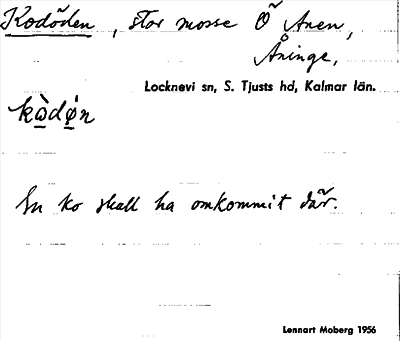 Kodöden, stor mosse Ö Anen,
Åninge,
Locknevi sn, S. Tjusts hd, Kalmar län.
kò̱dǿ̱n
En ko skall ha omkommit där.
Lennart Moberg 1956